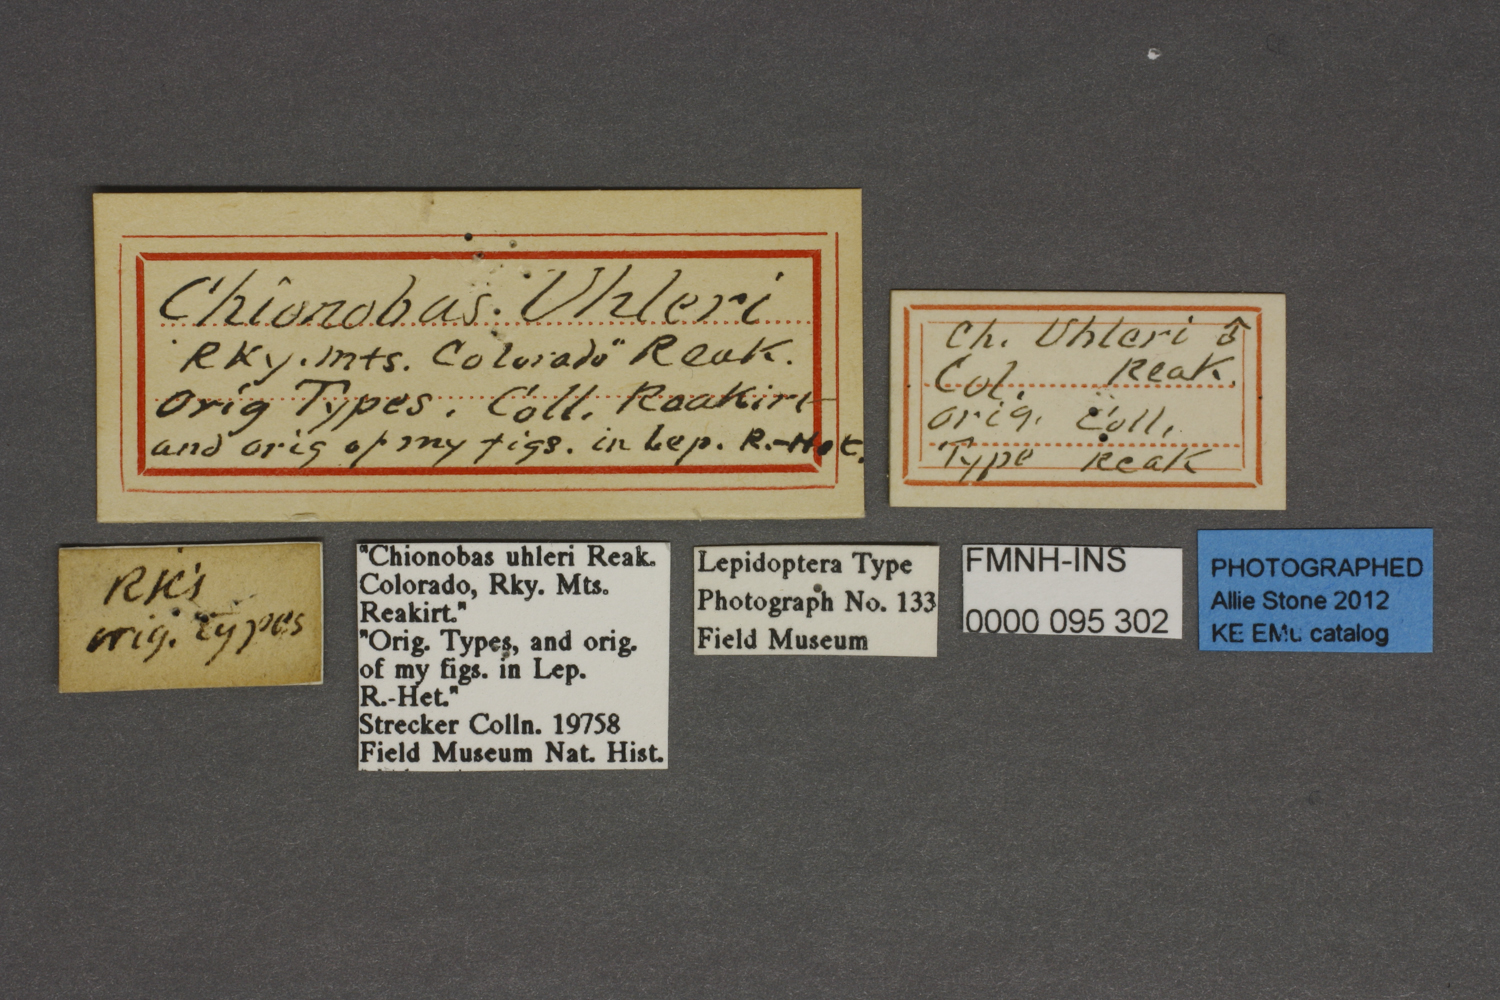 Chionobas. Uhleri
"Rky. mts. Colorado" Reak.
Orig Types. Coll. Reakirt
and orig of my figs. in Lep. R.-Het.
Ch. Uhleri ♂
Col. Reak.
orig. Coll.
Type Reak
RK's
orig. types
"Chionobas uhleri Reak.
Colorado, Rky. Mts.
Reakirt."
"Orig. Types, and orig.
of my figs. in Lep.
R.-Het."
Strecker Colln. 19758
Field Museum Nat. Hist.
Lepidoptera Type
Photograph No. 133
Field Museum
FMNH-INS
0000 095 302
PHOTOGRAPHED
Allie Stone 2012
KE EMu catalog